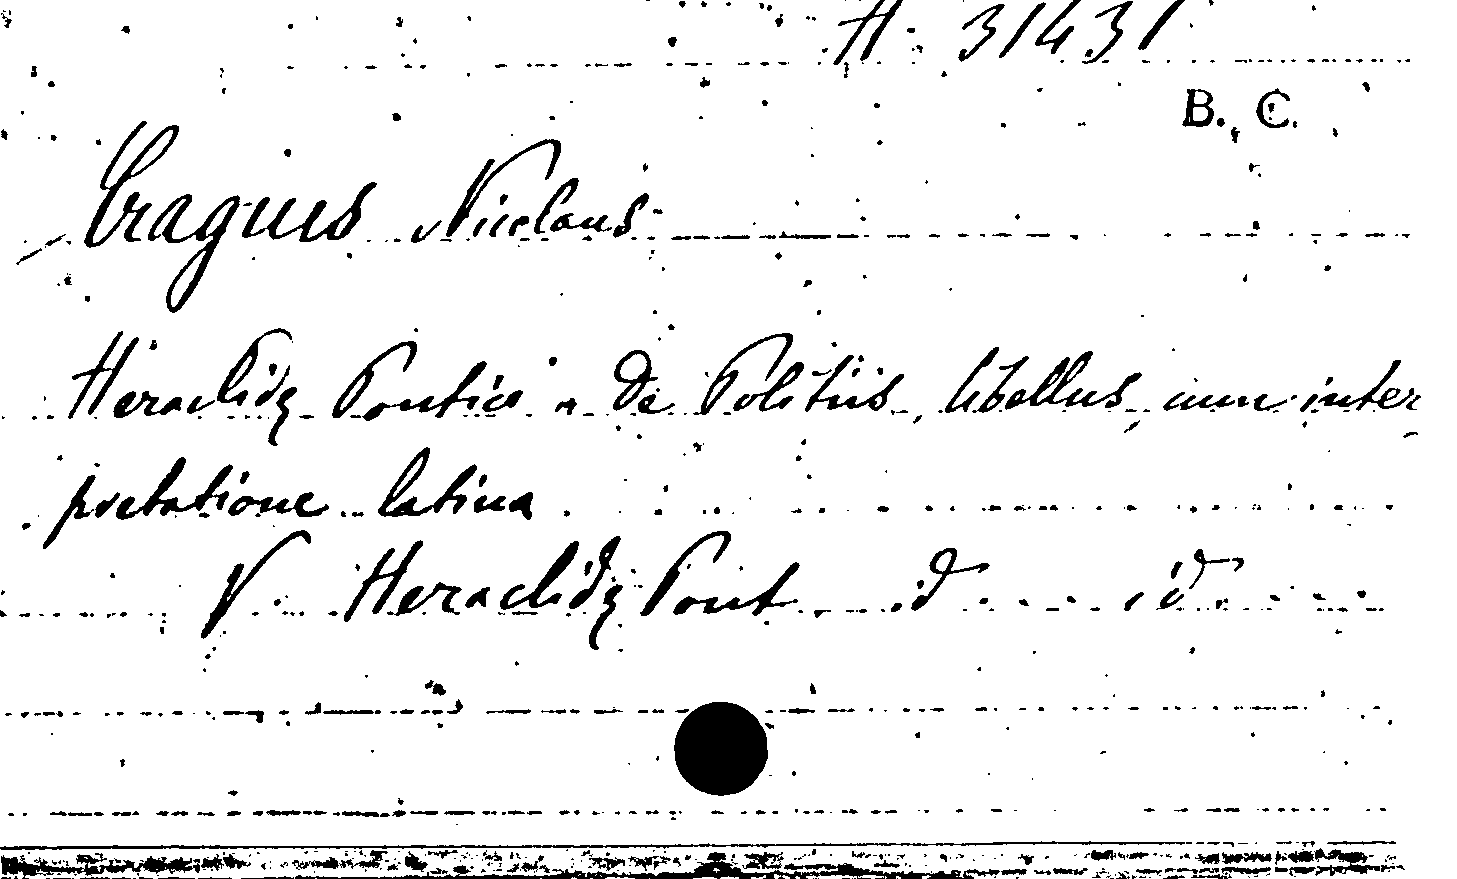 H. 31431
B. C.
Cragius Nicolaus
Heraclidę Pontici . De Politiis, libellus, cum inter
pretatione latina
V Heraclidę Pont . id . . . id . . .